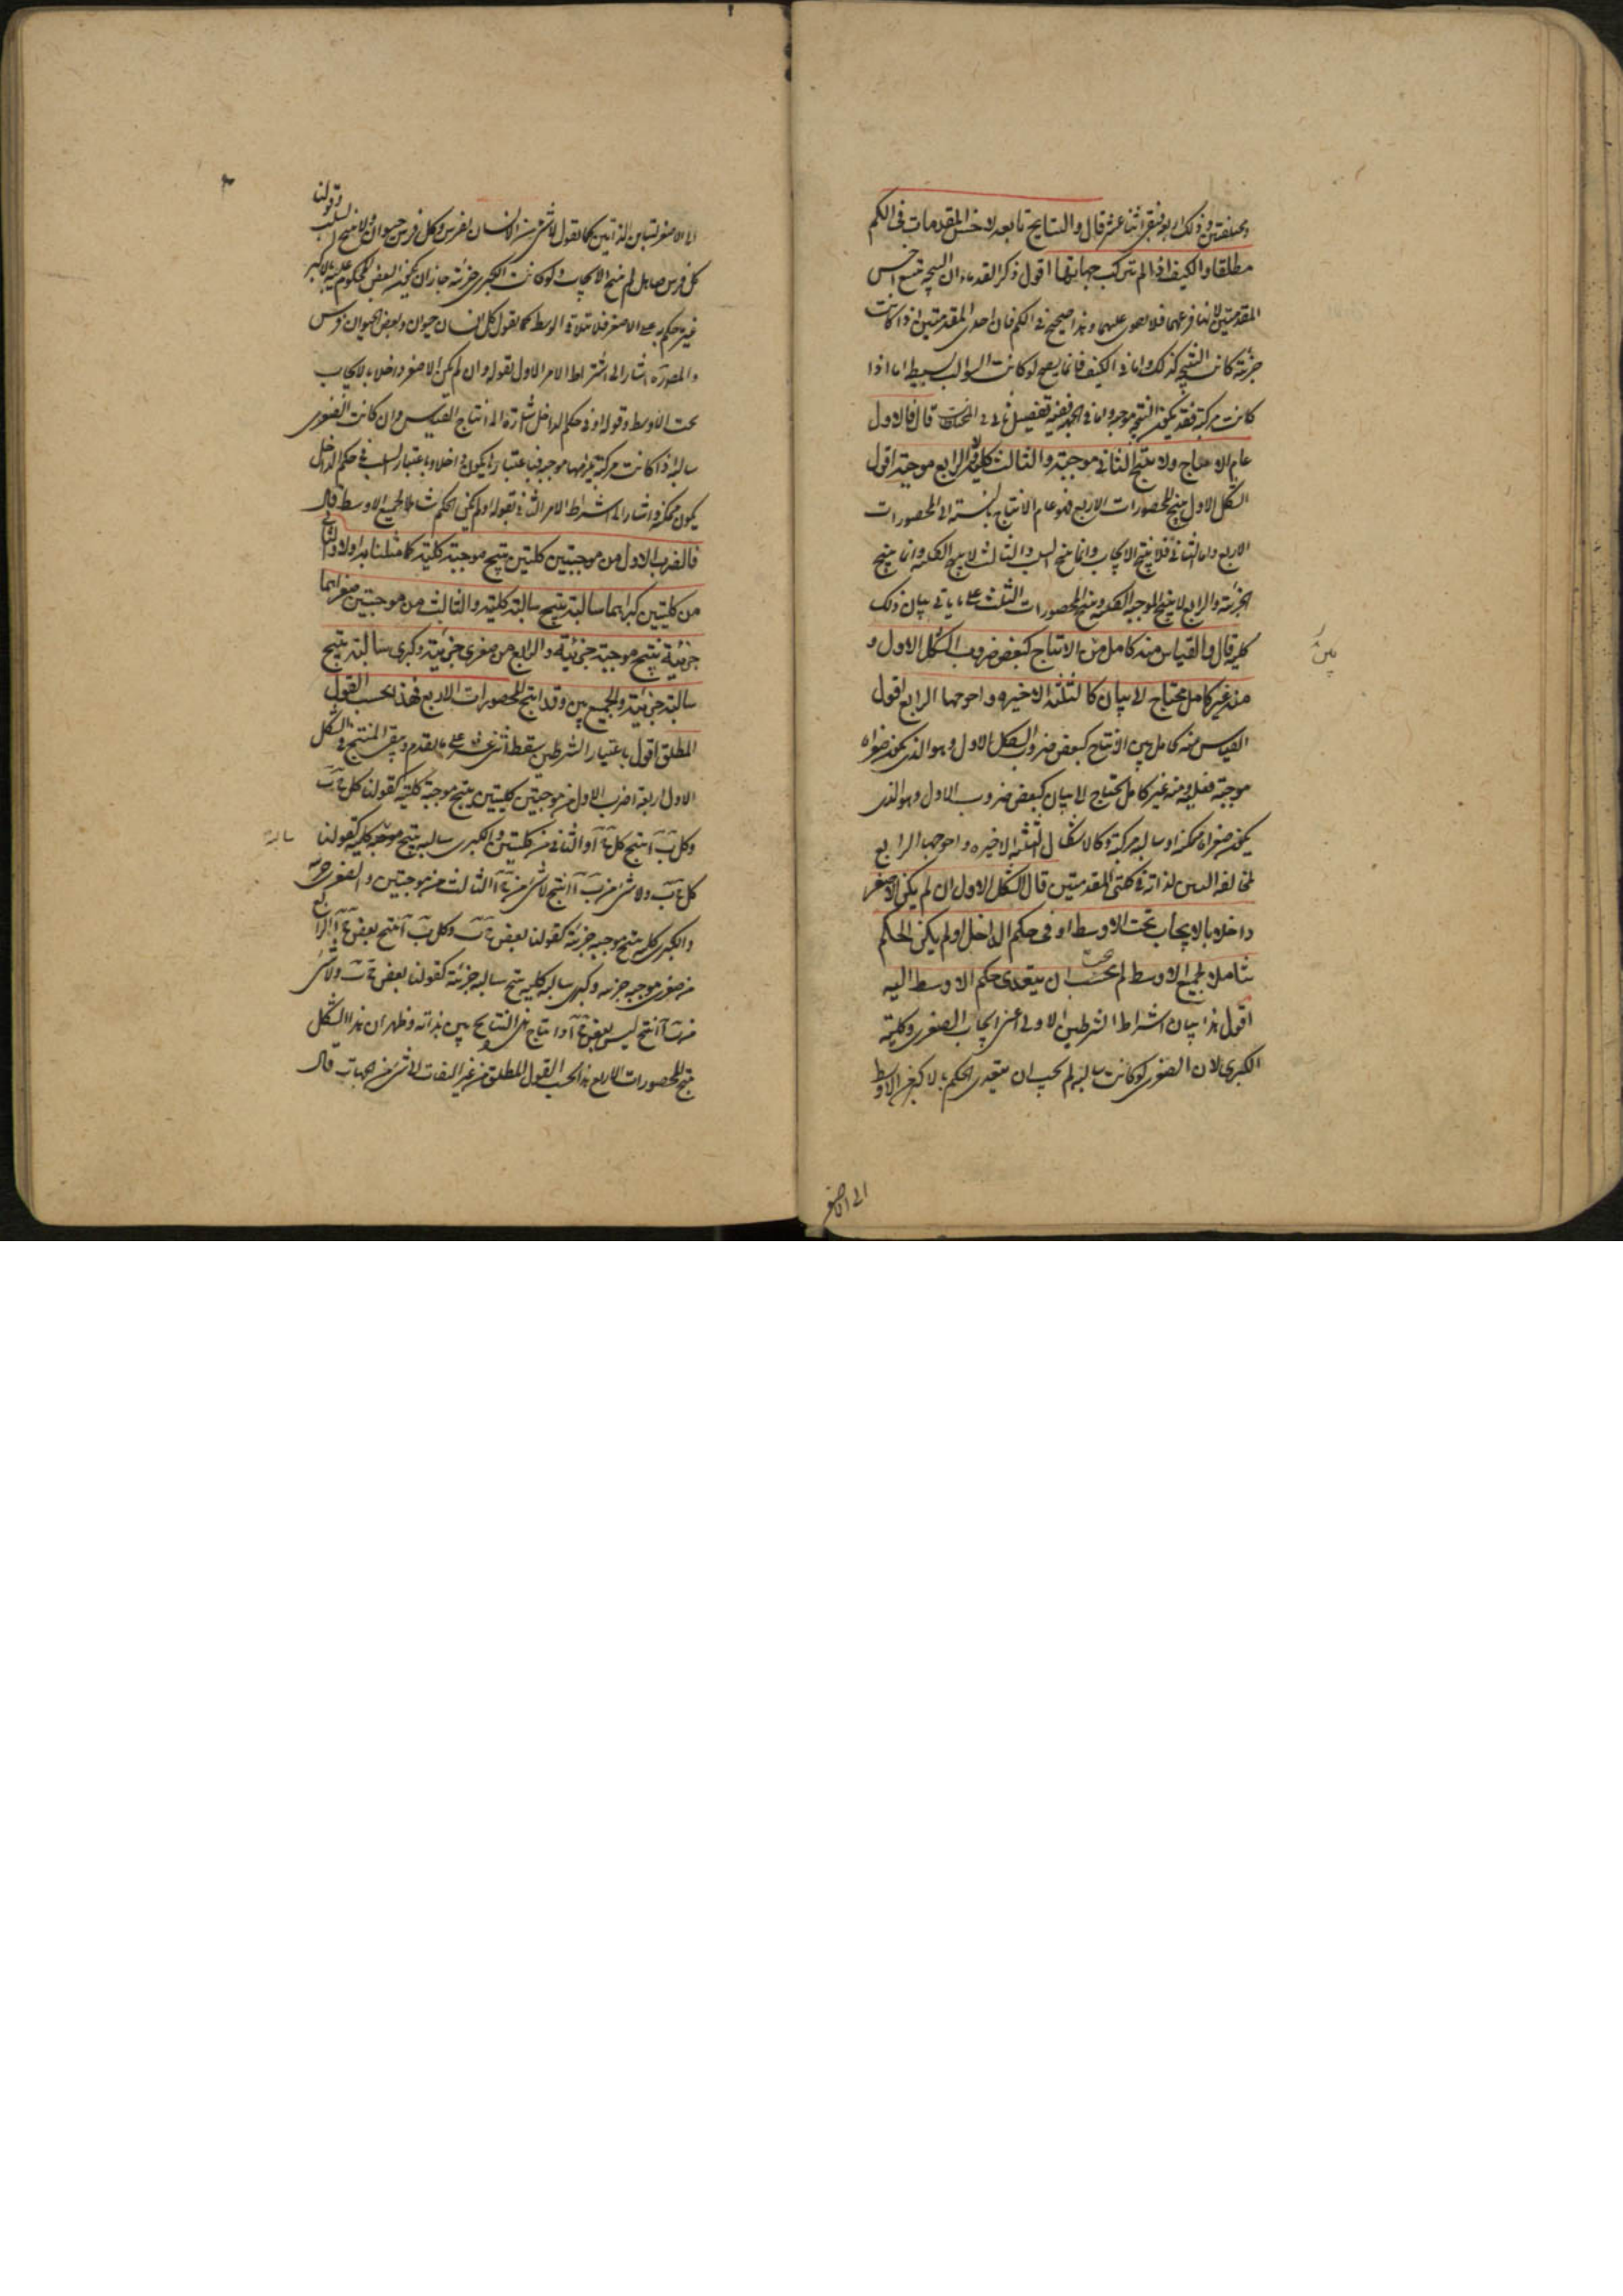 ومختلفتين وذلك اربعة فبقى اثنا عشر قال والنتايج تابعة لاخس المقدمات فى الكم
مطلقا والكيف اذا لم تتركب جهاتها اقول ذكر القدماء ان النتيجه تتبع اخس
المقدمتين لانها فرعهما فلا تقوى عليهما وهذا صحيح فى الكم فان احدى المقدمتين اذا كانت
جزئية كانت النتيجة كذلك واما فى الكيف فانما يصح لو كانت السوالب بسيطة اما اذا
كانت مركبة فقد يكون النتيجة موجبة واما فى الجهة ففيه تفصيل قال فالاول
عام الانتاج ولا ينتج الثانى موجبة والثالث كلية ولا الرابع موجبة اقول
الشكل الاول ينتج المحصورات الاربع فهو عام الانتاج بالنسبة الى المحصورات
الاربع واما الثانى فلا ينتج الايجاب وانما ينتج السلب والثالث لا ينتج الكلية وانما ينتج
الجزئية والرابع لا ينتج الموجبة الكلية وينتج المحصورات الثلث على ما ياتى بيان ذلك
كله قال والقياس منه كامل بين الانتاج كبعض ضروب الشكل الاول و
منه غير كامل يحتاج الى بيان كالثلثة الاخيره واحوجها الرابع اقول
القياس منه كامل بين الانتاج كبعض ضروب الشكل الاول وهو الذى يكون صغراه
موجبة فعلية ومنه غير كامل يحتاج الى بيان كبعض ضروب الاول وهو الذى
يكون صغراه ممكنة او سالبه مركبة وكالاشكال الثلثة الاخيره واحوجها الرابع
لمخالفته لذاته فى كلتى المقدمتين قال الشكل الاول ان لم يكن الاصغر
داخلا بالايجاب تحت الاوسط او فى حكم الداخل او لم يكن الحكم
شاملا لجميع الاوسط لم يجب ان يتعدى حكم الاوسط اليه
اقول هذا بيان اشتراط الشرطين الاولى اعنى ايجاب الصغرى وكلية
الكبرى لان الصغرى لو كانت سالبة لم يجب ان يتعدى الحكم بالاكبر من الاوسط
الى الاصغر
الى الاصغر لتباين الذاتين كما تقول لا شىء من الانسان بفرس وكل فرس حيوان ولا ينتج السلب وقولنا
كل فرس صاهل لم ينتج الايجاب ولو كانت الكبرى جزئية جاز ان يكون البعض المحكوم عليه بالاكبر
غير ما حكم به على الاصغر فلا تلاقى الوسط كما يقول كل انسان حيوان وبعض الحيوان فرس
والمصنف اشار الى اشتراط الامر الاول بقوله وان لم يكن الاصغر داخلا بالايجاب
تحت الاوسط وقوله او فى حكم الداخل اشارة الى انتاج القياس وان كانت الصغرى
سالبة اذا كانت مركبة جزئها موجبة فباعتباره يكون داخلا وباعتبار السلب فى حكم الداخل
يكون ممكنة واشار الى اشتراط الامر الثانى بقوله او لم يكن الحكم شاملا لجميع الاوسط قال
فالضرب الاول من موجبتين كليتين ينتج موجبة كلية كما مثلنا به اولا والثانى
من كليتين كبراهما سالبة ينتج سالبة كلية والثالث من موجبتين صغراهما
جزئية ينتج موجبة جزئية والرابع من صغرى جزئية وكبرى سالبة ينتج
سالبة جزئية والجميع بين وقد انتج المحصورات الاربع فهذا بحسب القول
المطلق اقول باعتبار الشرطين يسقط اثنى عشر على ما تقدم ويبقى المنتج فى الشكل
الاول اربعة اضرب الاول من موجبتين كليتين ينتج موجبة كلية كقولنا كل ج ب
وكل ب ا ينتج كل ج ا والثانى من كليتين والكبرى سالبه ينتج موجبة كليه كقولنا
سالبة
كل ج ب ولا شىء من ب ا ينتج لا شىء من ج ا الثالث من موجبتين والصغرى جزئية
والكبرى كلية ينتج موجبه جزئية كقولنا بعض ج ب وكل ب ا ينتج بعض ج ا الرابع
من صغرى موجبه جزئيه وكبرى سالبه كليه ينتج سالبه جزئية كقولنا بعض ج ب ولا شىء
من ب ا ينتج ليس بعض ج ا وانتاج هذه النتايج بين بذاته وظهر ان هذا الشكل
ينتج المحصورات الاربع هذا بحسب القول المطلق من غير التفات الى شىء من الجهات قال